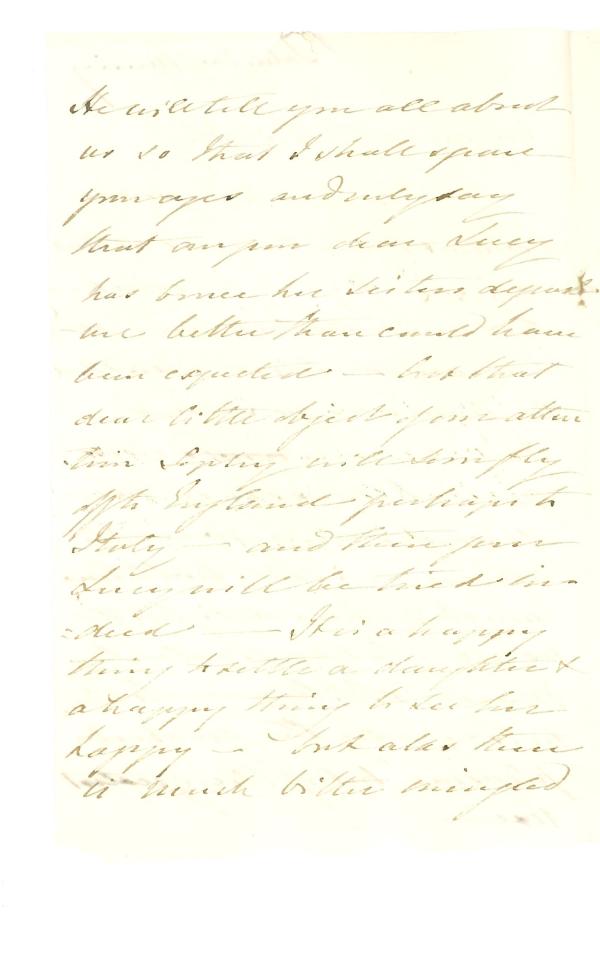 He will tell you all about
us so that I shall spare
your eyes and only say
that our poor dear Lucy
has borne her sisters depart
ure better than could have
been expected — but that
dear little object of our atten
-tion Sophy will soon fly
off to England perhaps to
Italy — and then poor
Lucy will be tried in-
=deed — It is a happy
thing to settle a daughter &
a happy thing to see her
happy — but alas there
is much bitter mingled